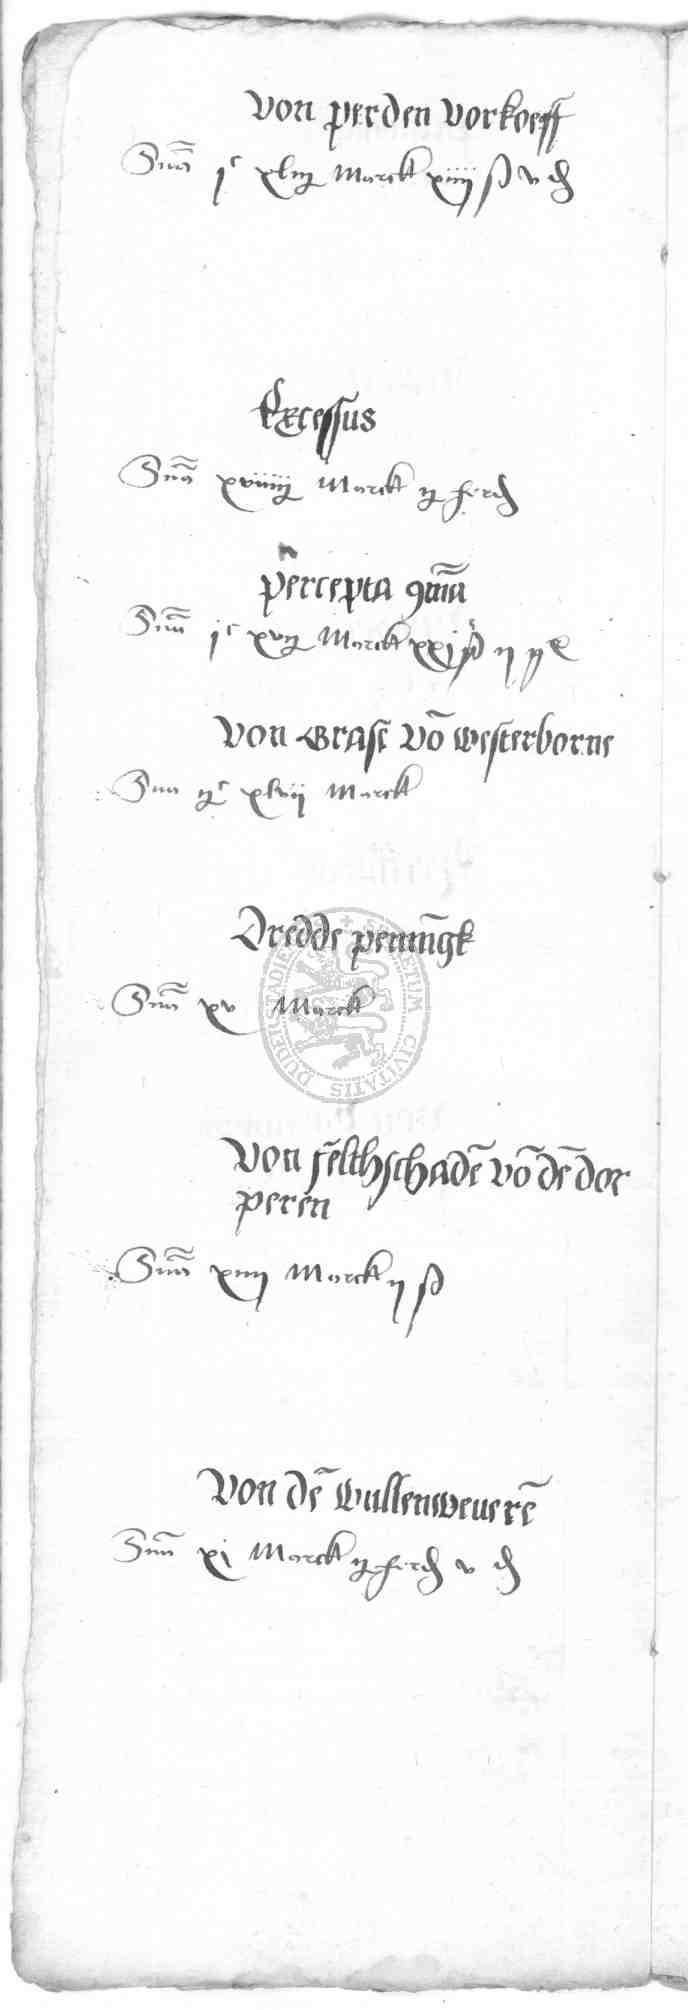 Von perden vorkoeff
Sum̄a jᶜ xliij Marck xiiij ß v ₰
Excessus
Sum̄a xviiiij Marck ij ferd
percepta ꝯmīa
Sum̄a jᶜ xvij Marck xxj ß ij
Von Grasē vō Westerborne
Sum̄a ijᶜ xlvij Marck
Dredde penningk
Sum̄a xv Marck
Von felthschadē vō dē dor
peren
Sum̄a xiiij Marck ij ß
Von dē Wullenweuerē
Sum̄a xj Marck ij ferd v ₰
SI CTUM CIVITATIS DUDERSTADIE